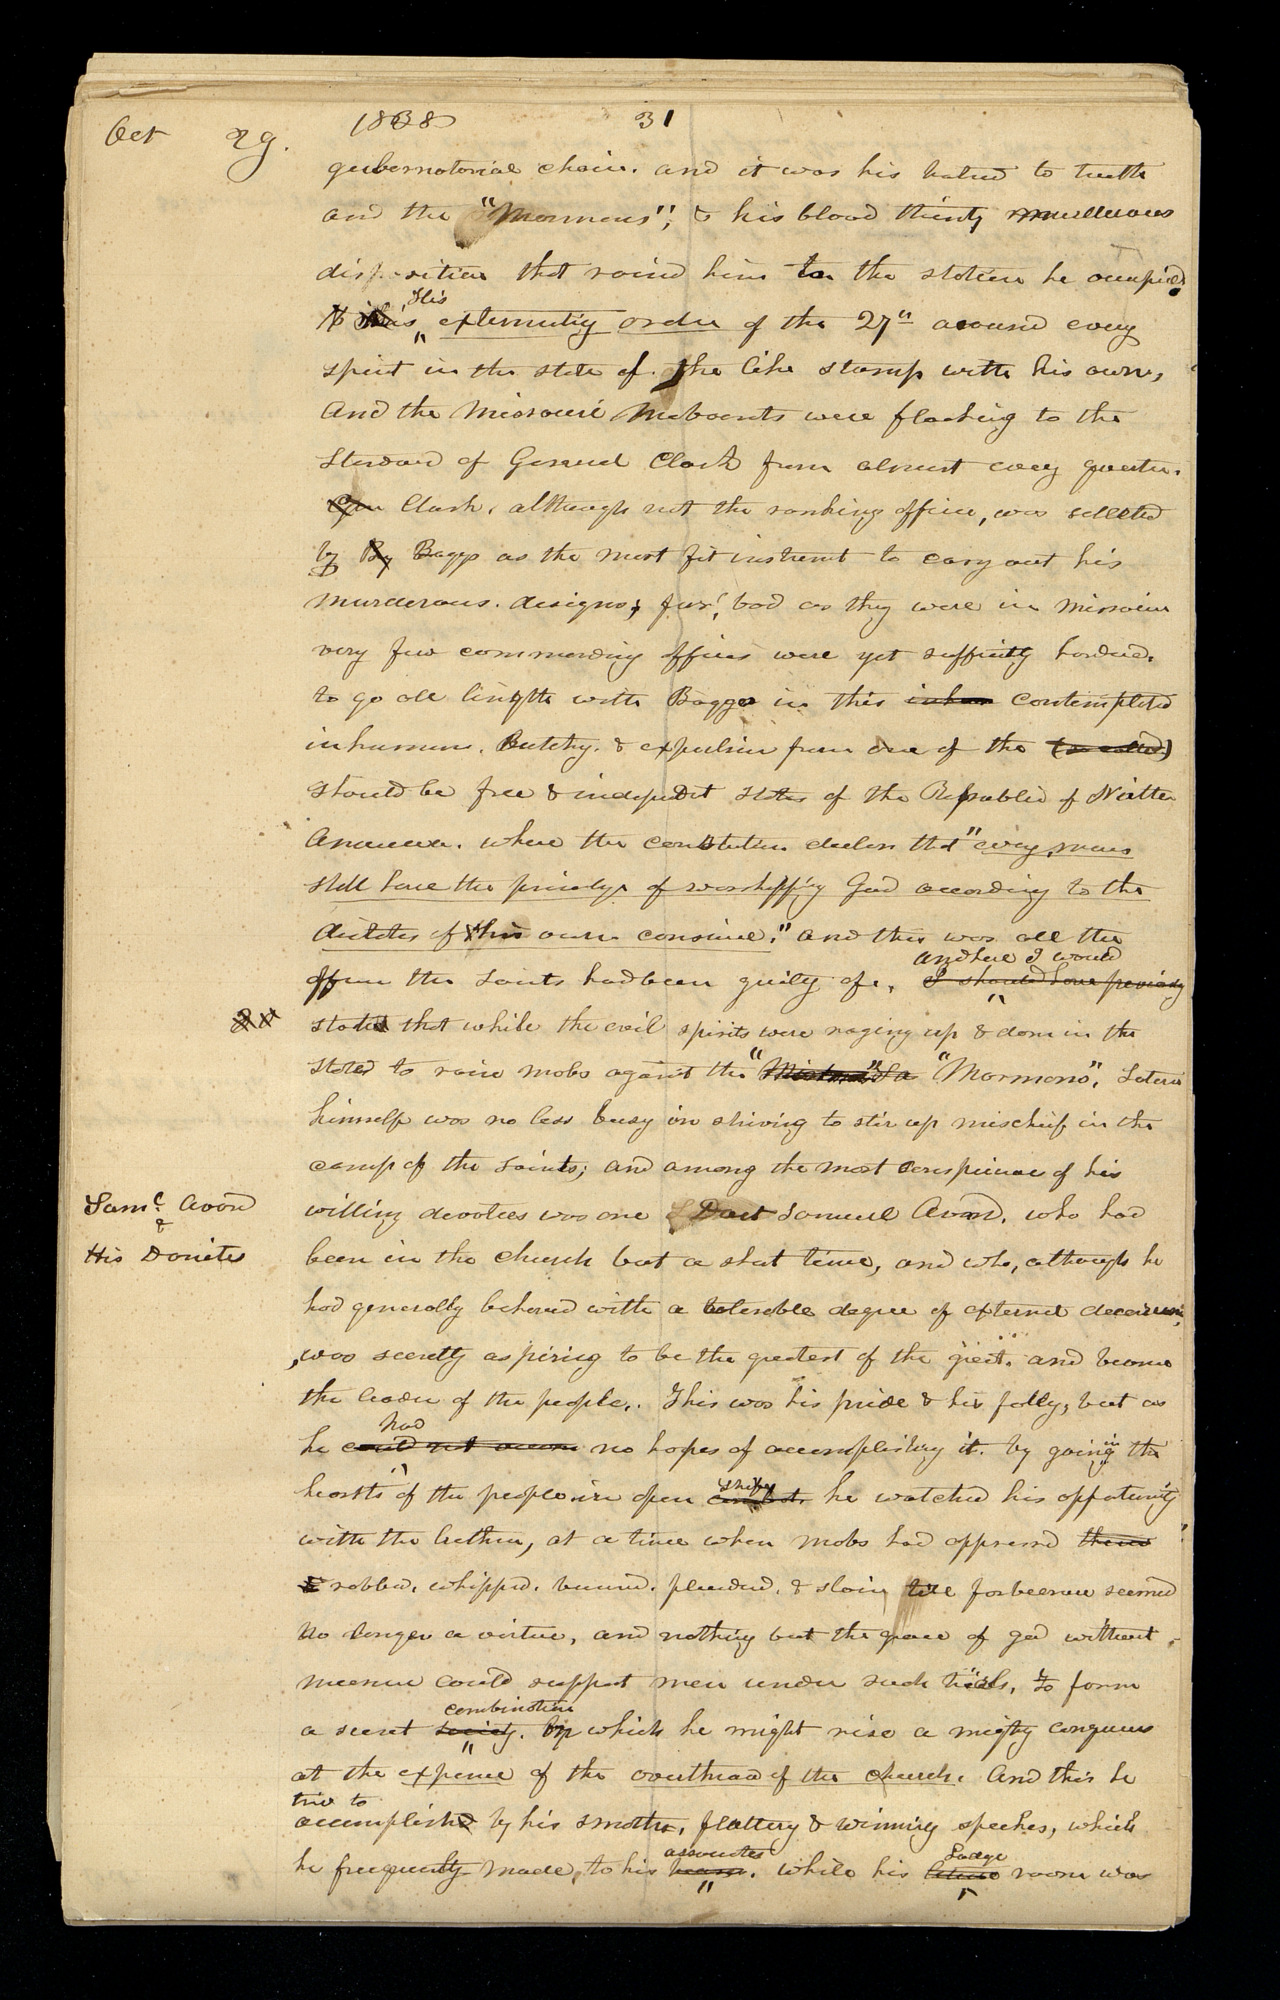 Oct 29. 1838 31
gubernatorial chair. and it was his hatred to truth
and the "Mormons", & his blood thirsty murderous
disposition that raised him to the station he occupied.
His extermintig order of the 27th aroused every
spirit in the state of the like stamp with his own,
And the Missouri Mobocrats were flocking to the
standard of General Clark from almost evey quarter.
Gen Clark, although not the ranking officer, was selected
by By Boggs as the most fit instrumt to cary out his
murderous designs; for, bad as they were in Missouri
very few commanding officers were yet sufficitly hardned.
to go all lingths with Boggs in this inhum contemplated
inhuman. Butchey. & expulsion from one of the (so called)
should be free & indepedet states of the Republic of North
America. where the constitution declares that "every man
shll have the privelge of worshippig God according to the
dictates of his own consience." and this was all the
offence the saints had been guilty of.
and here I would
I should have previosly
stated that while the evil spirits were raging up & down in the
state to raise mobs against the "Mormons", Satan
himself was no less busy in striving to stir up mischeif in the
camp of the saints; and among the most conspicuous of his
Saml. Avard
&
His Danites
willing devotees was one Doct Samuel Avard. who had
been in the church but a short time, and who, although he
had generally behaved with a tolerable degree of external decorum,
was secretly aspiring to be the greatest of the great. and become
the leader of the people. This was his pride & his folly, but as
had
he could not no hopes of accomplishing it. by gaining the
hearts of the people in open strife he watched his oppotunity
with the brethren, at a time when mobs had oppressed them
robbed. whipped. burned. plundered. & slain till forbearance seemed
no longer a virtue, and nothing but the grace of god without
measure could support men under such trials, to form
combination
a secret society. by which he might rise a mighty conqueror
at the expence of the overthrow of the church. and this he
tried to
accomplish by his smooth, flattery & winning speeches, which
associates
he frequently made to his while his Lodge room was